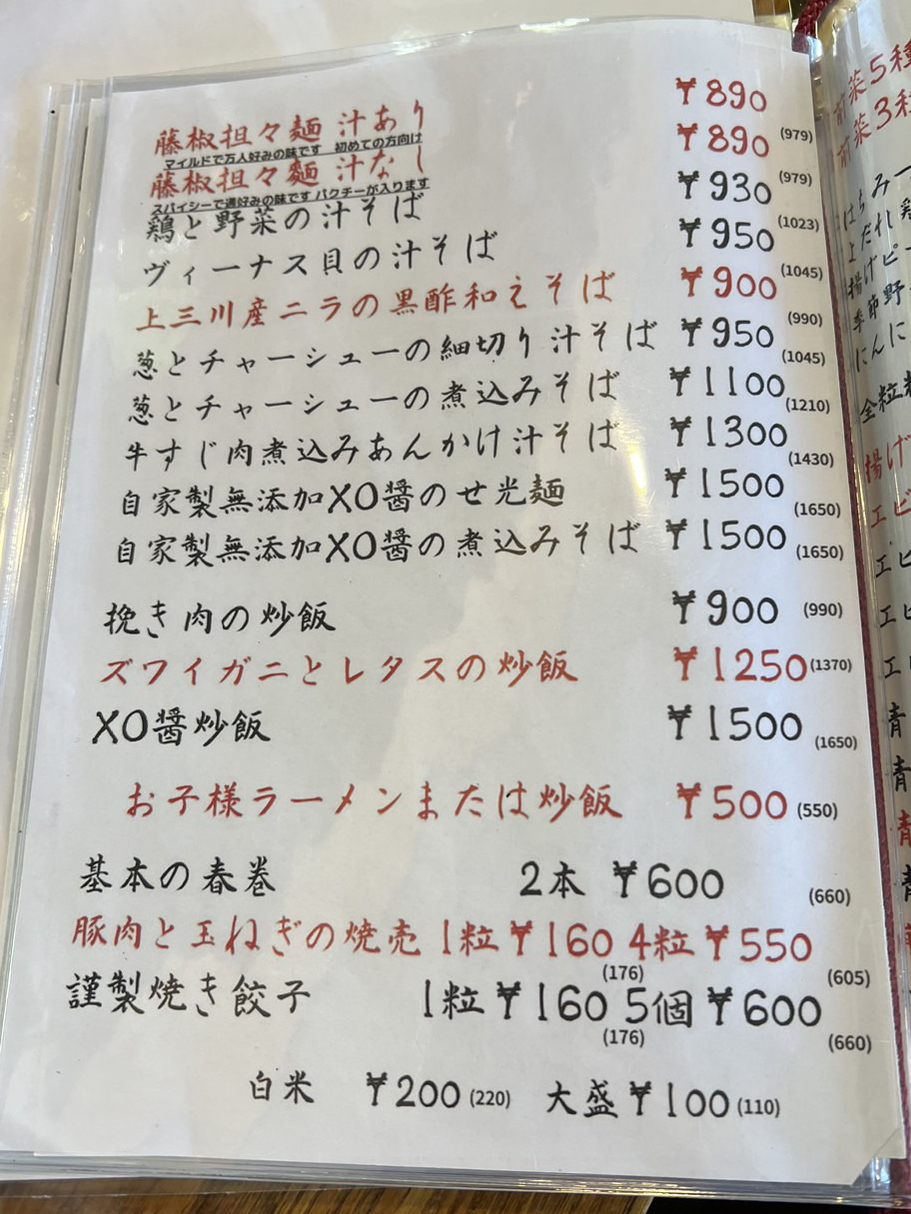 藤椒担々麺 汁あり ¥890
マイルドで万人好みの味です 初めての方向け (979)
藤椒担々麺 汁なし ¥890
スパイシーで通好みの味です パクチーが入ります (979)
鶏と野菜の汁そば ¥930 (1023)
ヴィーナス貝の汁そば ¥950 (1045)
上三川産ニラの黒酢和えそば ¥900 (990)
葱とチャーシューの細切り汁そば ¥950 (1045)
葱とチャーシューの煮込みそば ¥1100 (1210)
牛すじ肉煮込みあんかけ汁そば ¥1300 (1430)
自家製無添加XO醬のせ光麺 ¥1500 (1650)
自家製無添加XO醬の煮込みそば ¥1500 (1650)
挽き肉の炒飯 ¥900 (990)
ズワイガニとレタスの炒飯 ¥1250 (1370)
XO醬炒飯 ¥1500 (1650)
お子様ラーメンまたは炒飯 ¥500 (550)
基本の春巻 2本 ¥600 (660)
豚肉と玉ねぎの焼売 1粒 ¥160 4粒 ¥550
(176) (605)
謹製焼き餃子 1粒 ¥160 5個 ¥600
(176) (660)
白米 ¥200 (220) 大盛 ¥100 (110)
前菜5種
前菜3種
はちみ
よだれ鶏
揚げピー
季節野
にんに
全粒
揚げ
エビ
エビ
エビ
エ
青
青
青
青